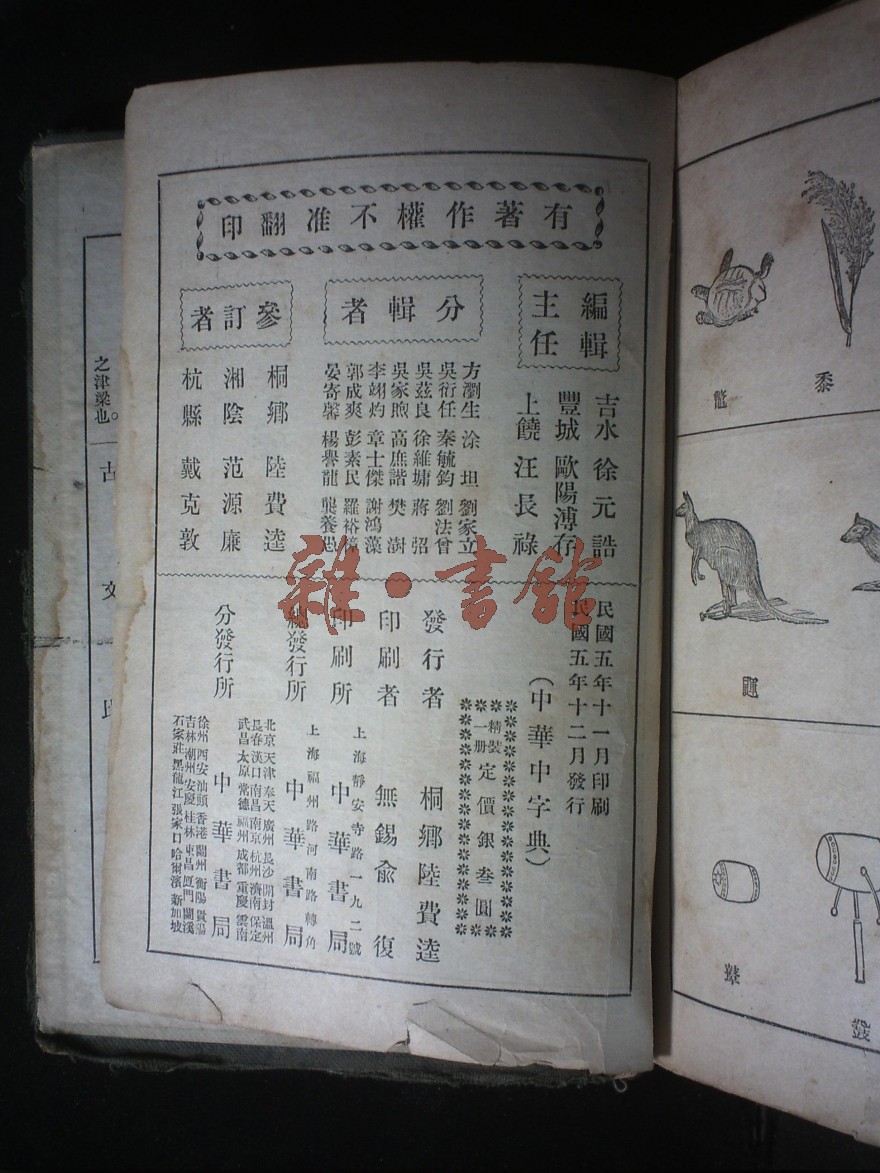 有著作權不准翻印
編輯
主任
吉水 徐元誥
豐城 歐陽溥存
上饒 汪長祿
分輯者
方瀏生 涂坦 劉家立
吳衍任 秦毓鈞 劉法曾
吳茲良 徐維墉 蔣弨
吳家煦 高庶諧 樊澍
李翊灼 章士傑 謝鴻藻
郭成爽 彭素民 羅裕樟
晏寄馨 楊譽龍
參訂者
桐鄉 陸費逵
湘陰 范源廉
杭縣 戴克敦
民國五年十一月印刷
民國五年十二月發行
(中華中字典)
精裝一冊 定價銀叁圓
發行者 桐鄉陸費逵
印刷者 無錫俞復
印刷所 上海靜安寺路一九二號 中華書局
總發行所 上海福州路河南路轉角 中華書局
分發行所
北京 天津 奉天 廣州 長沙 開封 溫州
長春 漢口 南昌 南京 杭州 濟南 保定
武昌 太原 常德 福州 成都 重慶 雲南
中華書局
徐州 西安 汕頭 香港 蘭州 衡陽 貴陽
吉林 潮州 安慶 桂林 東昌 厦門 蘭溪
石家莊 黑龍江 張家口 哈爾濱 新加坡
雜·書館
之津梁也。
古
文
黍
鼗